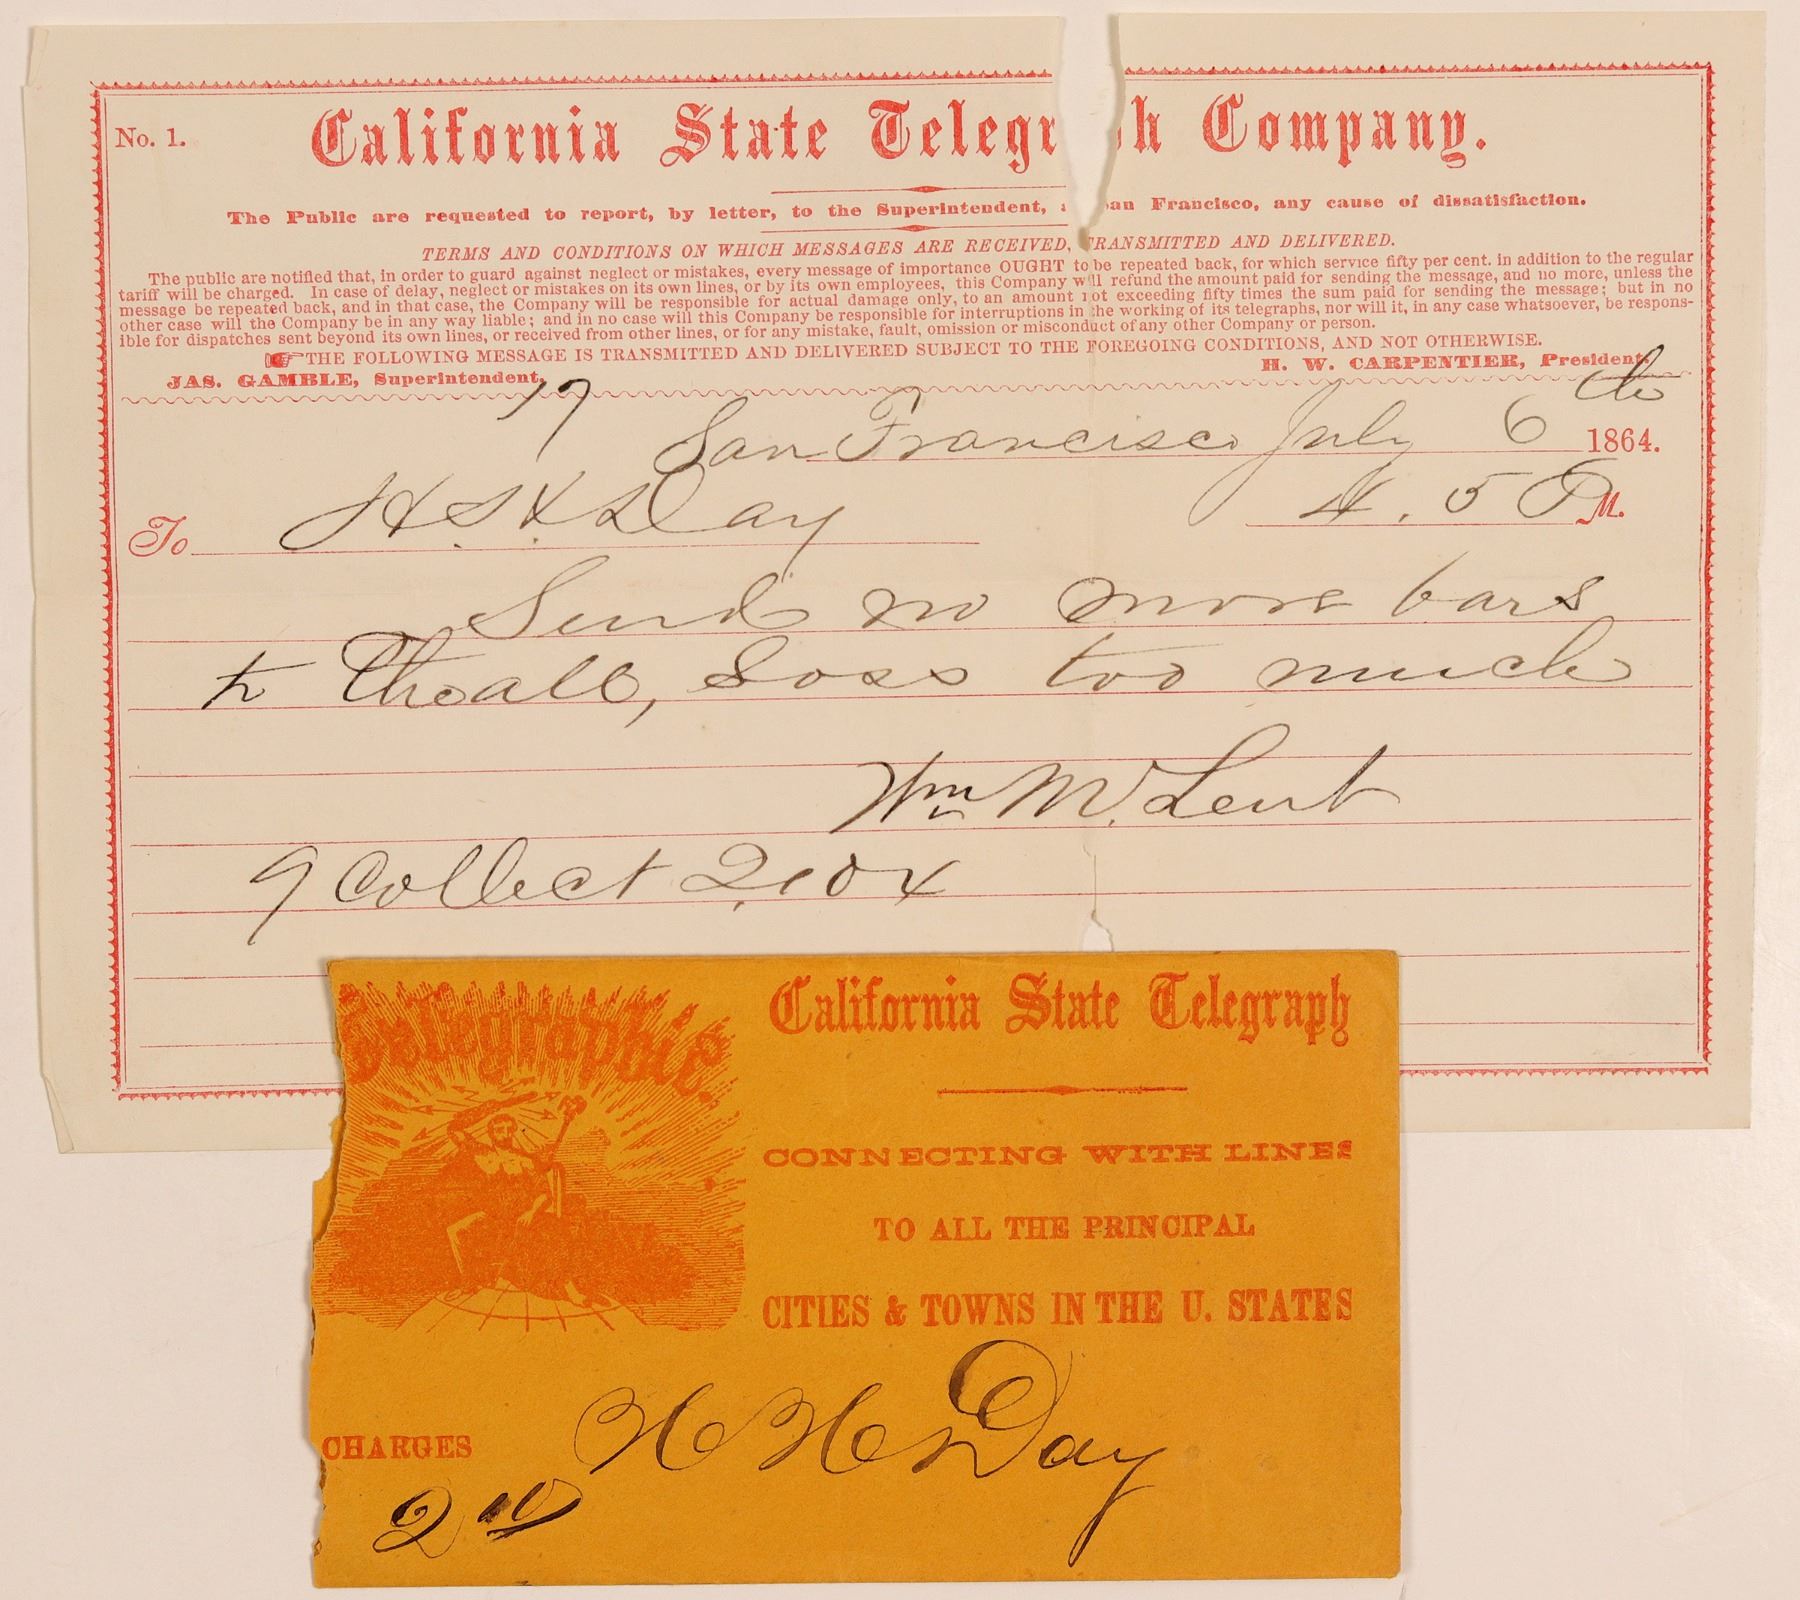 No. 1.
California State Telegr h Company.
The Public are requested to report, by letter, to the Superintendent, San Francisco, any cause of dissatisfaction.
TERMS AND CONDITIONS ON WHICH MESSAGES ARE RECEIVED, TRANSMITTED AND DELIVERED.
The public are notified that, in order to guard against neglect or mistakes, every message of importance OUGHT to be repeated back, for which service fifty per cent. in addition to the regular
tariff will be charged. In case of delay, neglect or mistakes on its own lines, or by its own employees, this Company will refund the amount paid for sending the message, and no more, unless the
message be repeated back, and in that case, the Company will be responsible for actual damage only, to an amount not exceeding fifty times the sum paid for sending the message; but in no
other case will the Company be in any way liable; and in no case will this Company be responsible for interruptions in the working of its telegraphs, nor will it, in any case whatsoever, be respons-
ible for dispatches sent beyond its own lines, or received from other lines, or for any mistake, fault, omission or misconduct of any other Company or person.
THE FOLLOWING MESSAGE IS TRANSMITTED AND DELIVERED SUBJECT TO THE FOREGOING CONDITIONS, AND NOT OTHERWISE.
JAS. GAMBLE, Superintendent. H. W. CARPENTIER, President.
17
San Francisco July 6 1864.
To Day 4.5 P M.
Send no more bars
to Theall, Loss too much
Wm M. Lent
9 Collect 2.10
Telegraphic.
California State Telegraph
CONNECTING WITH LINES
TO ALL THE PRINCIPAL
CITIES & TOWNS IN THE U. STATES
CHARGES
H H Day
2